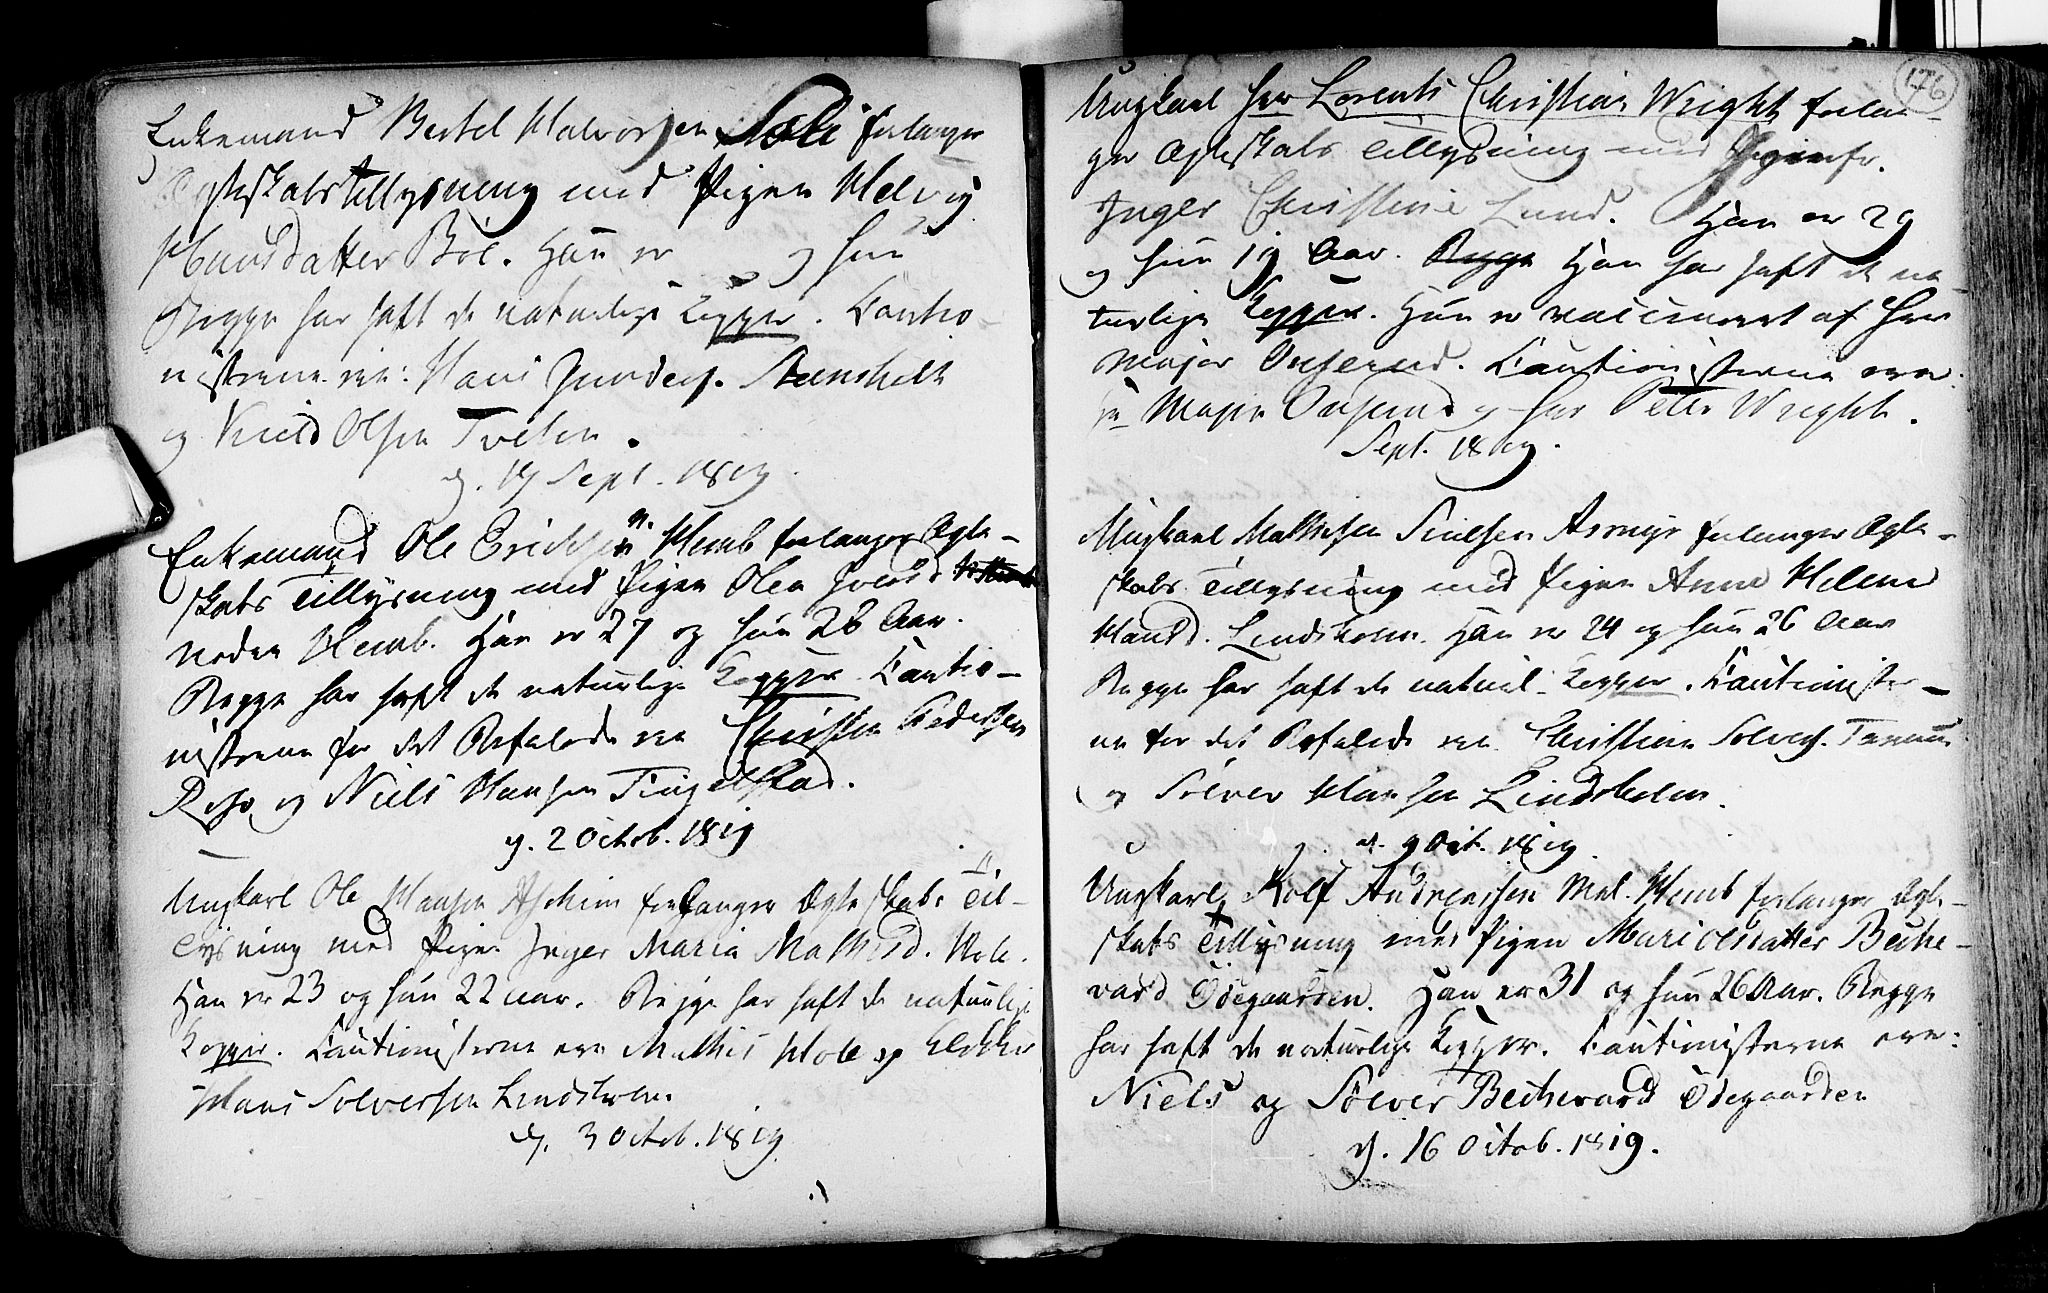 Enkemand Bertel Halvorsen Sæli forlanger
Ægteskabstillysning med Pigen Helvig
Hansdatter Böe. Han er og hun
Begge har haft de naturlige Kopper. Cautio-
nisterne ere: Hans
og Knud Olsen Tveten.
d. 19 Sept. 1819.
Enkemand Ole Erichsen n. Hemb forlanger Ægte-
skabs Tillysning med Pigen Olea
neden Hemb. Han er 27 og hun 28 Aar.
Begge har haft de naturlige Kopper. Cautio-
nisterne for det Befalede ere Christen Pedersen
og Niels Hansen Tingelstad.
d. 2 Octob. 1819
Ungkarl Ole Hansen Askim forlanger Ægteskabs Til-
lysning med Pigen Inger Maria Mathisd. Hole.
Han er 23 og hun 22 aar. Begge har haft de naturlige
Kopper. Cautionisterne ere Mathis Hole og Klokker
Hans Solversen Lindsholm.
d. 3 Octob. 1819
176
Ungkarl Herr Lorents Christian Wright forlan-
ger Ægteskabs Tillysning med Jomfr.
Inger Christine Lund. Han er 29
og hun 19 Aar. Begge Han har haft de na-
turlige Kopper. Hun er vaccineret af Herr
Major Onserud. Cautionisterne ere:
Hr Major Onserud og Herr Peter Wright.
Sept. 1819.
Ungkarl Mathisen Asmyr forlanger Ægte-
skabs Tillysning med Pigen Anne Helene
Hansd. Lindsholm. Han er 24 og hun 26 Aar
Begge har haft de naturl. Kopper. Cautionister-
ne for det Befalede ere Christian Solvers.
og Sölver Hansen Lindsholm.
d. 9 Oct. 1819.
Ungkarl Rolf Andreassen Mel. Hemb forlanger Ægte-
skabs Tillysning med Pigen Mari Olsdatter Beche-
vard Ödegaarden. Han er 31 og hun 26 Aar. Begge
har haft de naturlige Kopper. Cautionisterne ere:
Niels og Sölver Bechevard Ödegaarden
d. 16 Octob. 1819.